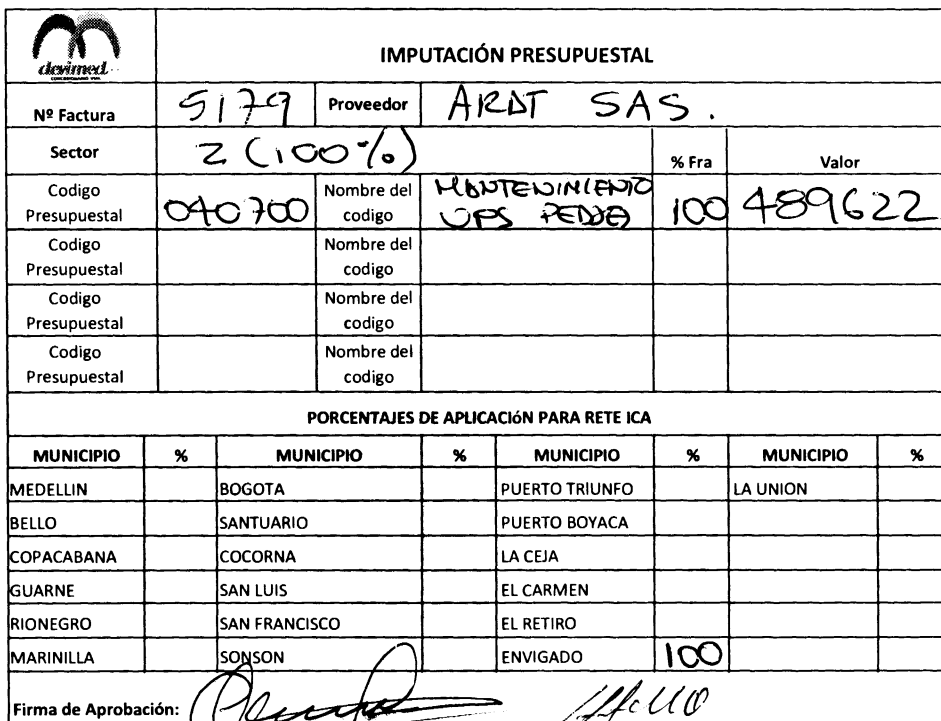 devimed
IMPUTACIÓN PRESUPUESTAL
Nº Factura 5179 Proveedor ARDT SAS.
Sector 2 (100%) % Fra Valor
Codigo Presupuestal 040700 Nombre del codigo MANTENIMIENTO UPS PEDJE 100 489622
Codigo Presupuestal Nombre del codigo
Codigo Presupuestal Nombre del codigo
Codigo Presupuestal Nombre del codigo
PORCENTAJES DE APLICACIÓN PARA RETE ICA
MUNICIPIO % MUNICIPIO % MUNICIPIO % MUNICIPIO %
MEDELLIN BOGOTA PUERTO TRIUNFO LA UNION
BELLO SANTUARIO PUERTO BOYACA
COPACABANA COCORNA LA CEJA
GUARNE SAN LUIS EL CARMEN
RIONEGRO SAN FRANCISCO EL RETIRO
MARINILLA SONSON ENVIGADO 100
Firma de Aprobación: